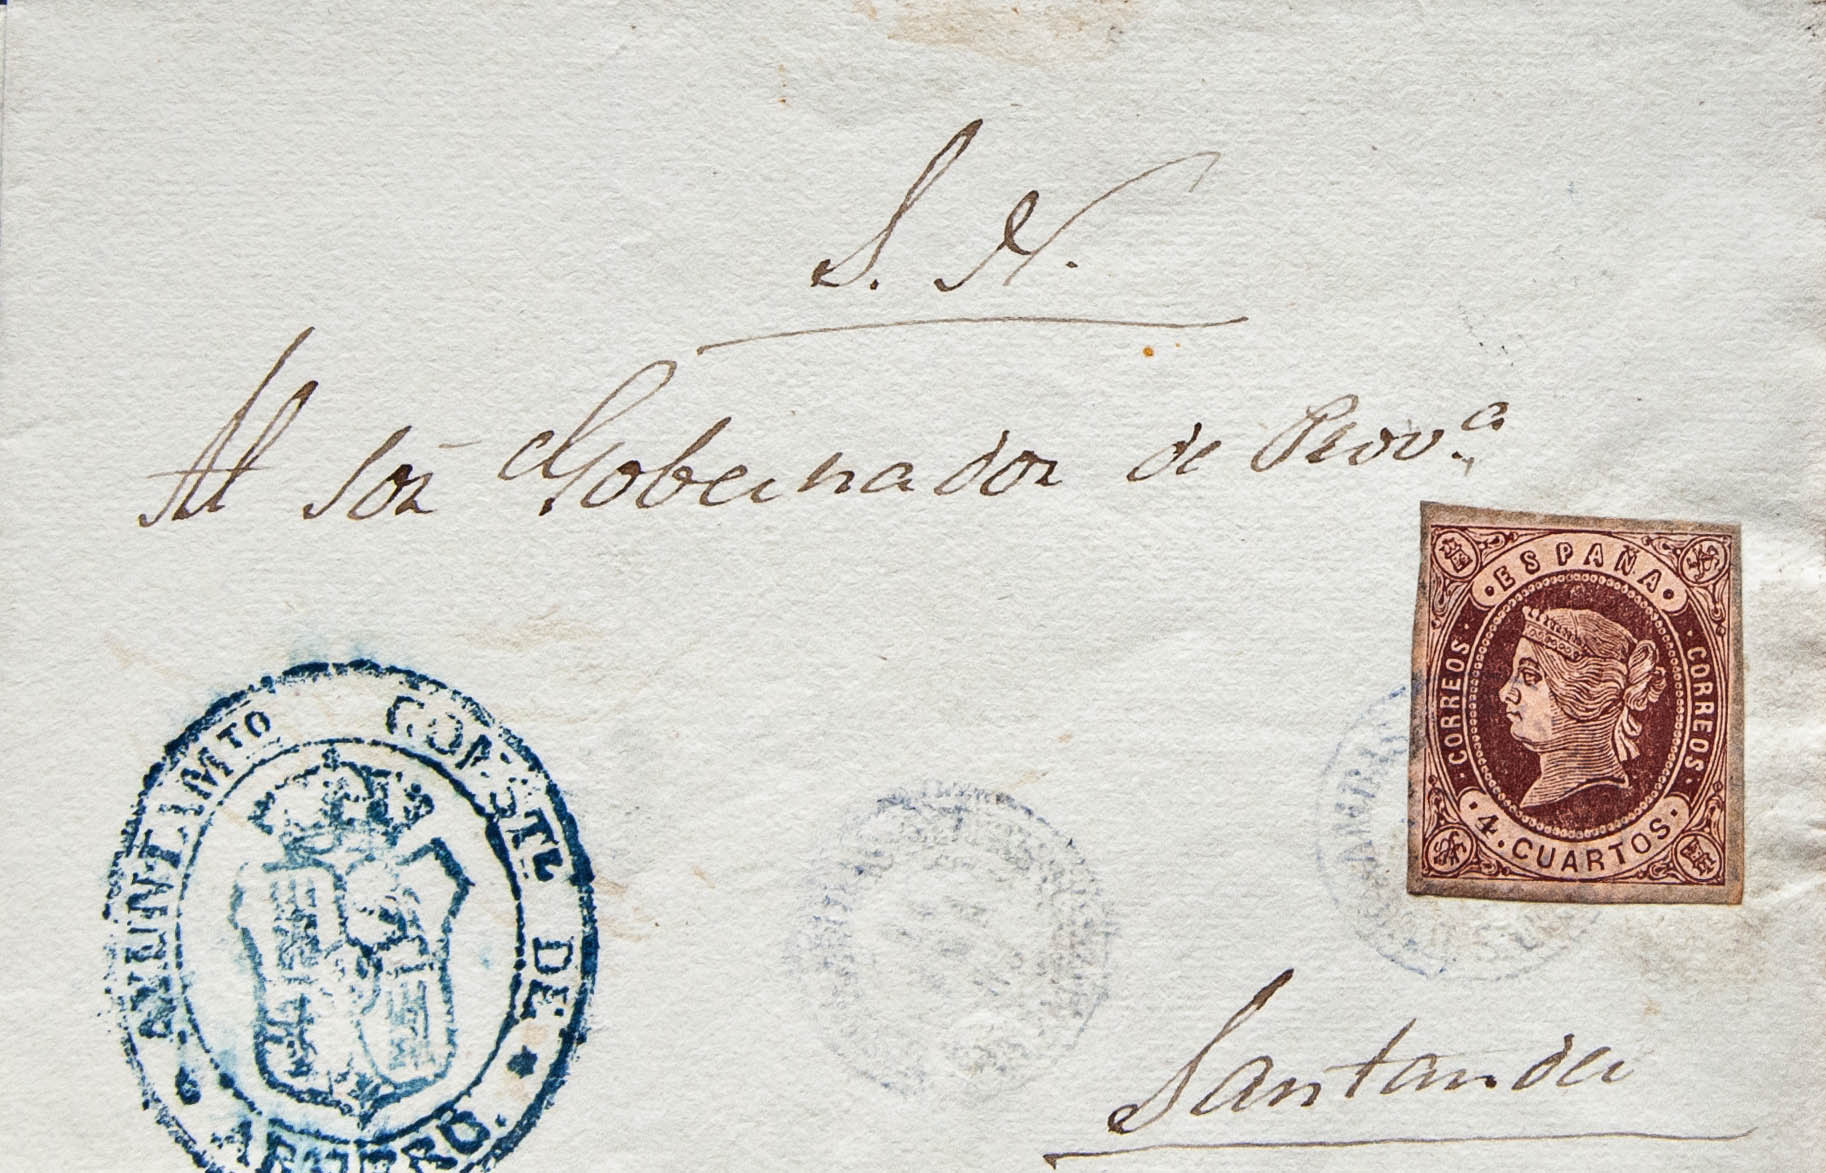 S. N.
Al Sor̃ Gobernador de Prov.ª
ESPAÑA
CORREOS
CORREOS
4. CUARTOS
AYUNTAMTO CONSTL DE
Santander